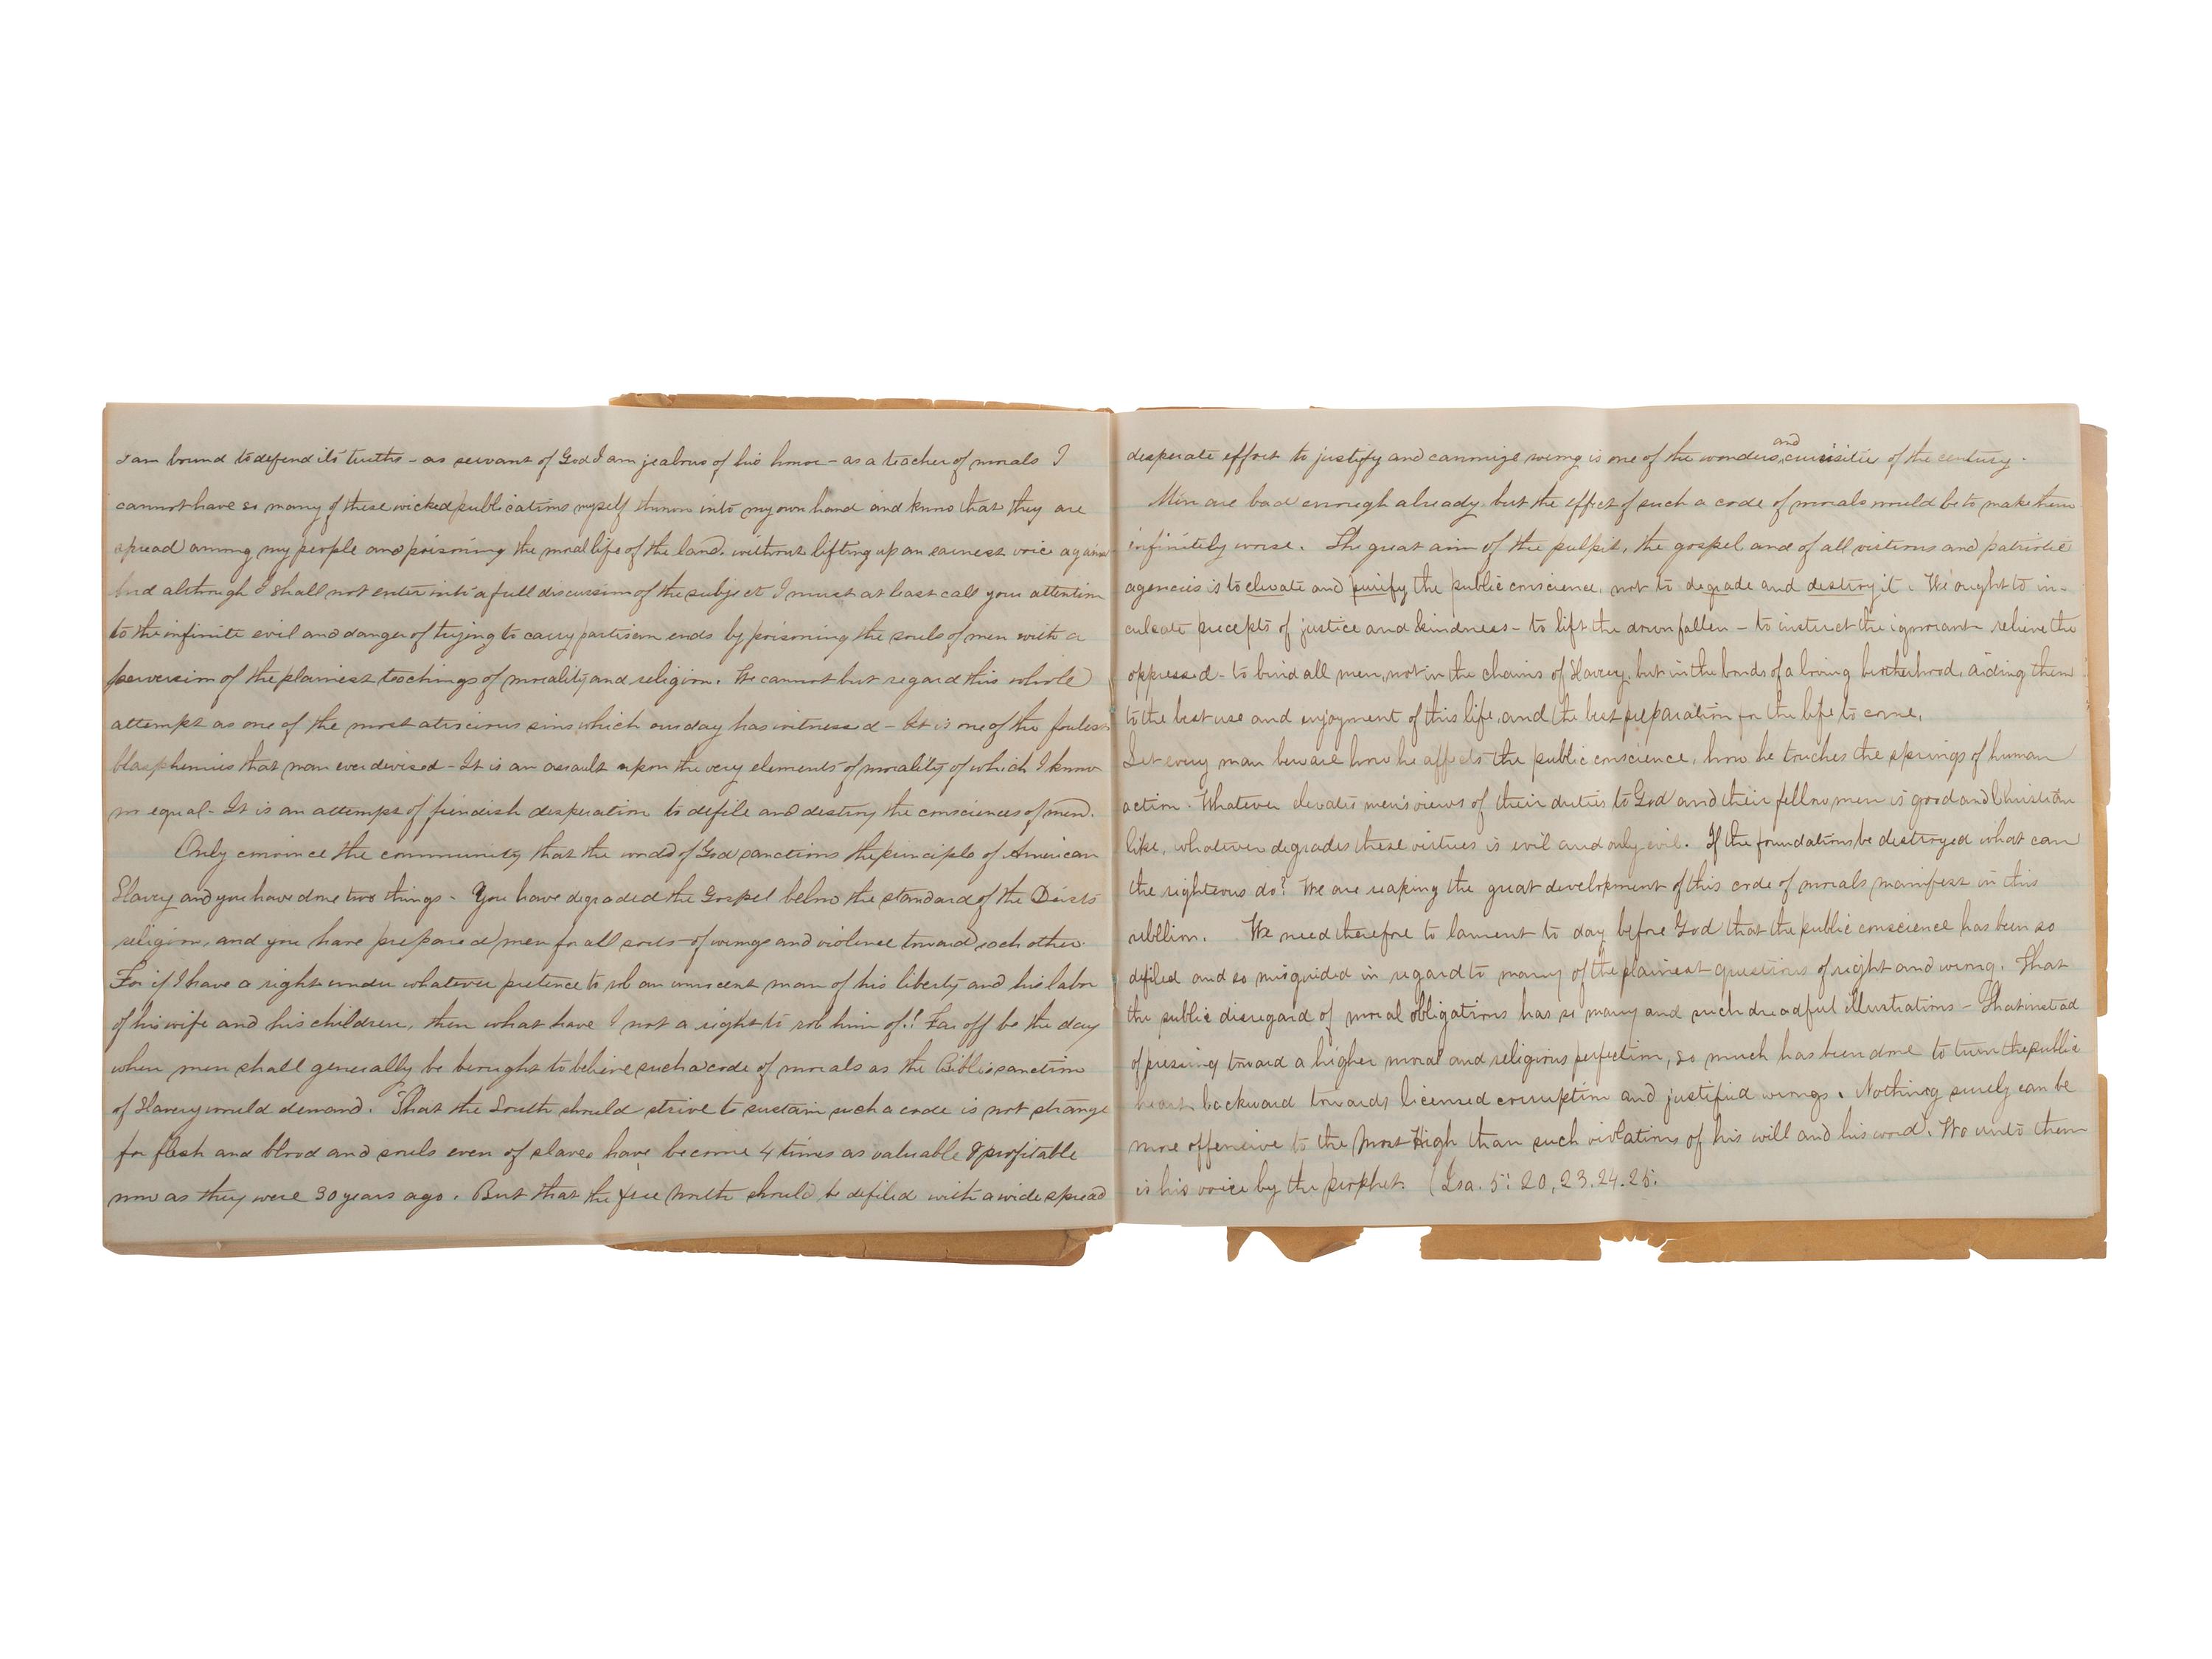 I am bound to defend its truths - as servant of God I am jealous of his honor - as a teacher of morals I
cannot have so many of these wicked publications myself thrown into my own hand and know that they are
spread among my people and poisoning the moral life of the land, without lifting up an earnest voice against
And although I shall not enter into a full discussion of the subject I must at least call your attention
to the infinite evil and danger of trying to carry partisan ends by poisoning the souls of men with a
perversion of the plainest teachings of morality and religion. We cannot but regard this whole
attempt as one of the most atrocious sins which our day has witnessed - It is one of the foulest
blasphemies that man ever devised - It is an assault upon the very elements of morality of which I know
no equal - It is an attempt of fiendish desperation to defile and destroy the consciences of men.
Only convince the community that the word of God sanctions the principle of American
Slavery and you have done two things - You have degraded the Gospel below the standard of the Deists
religion, and you have prepared men for all sorts of wrongs and violence toward each other.
For if I have a right under whatever pretence to rob an innocent man of his liberty and his labor
of his wife and his children, then what have I not a right to rob him of!! Far off be the day
when men shall generally be brought to believe such a code of morals as the Bible sanction
of Slavery would demand. That the South should strive to sustain such a code is not strange
for flesh and blood and souls even of slaves have become 4 times as valuable & profitable
now as they were 30 years ago. But that the free North should be defiled with a wide spread
desperate effort to justify and canonize wrong is one of the wonders and curiosities of the century.
Men are bad enough already but the effect of such a code of morals would be to make them
infinitely worse. The great aim of the pulpit, the gospel and of all virtuous and patriotic
agencies is to elevate and purify the public conscience, not to degrade and destroy it. We ought to in-
culcate precepts of justice and kindness - to lift the down fallen - to instruct the ignorant relieve the
oppressed - to bind all men, not in the chains of Slavery, but in the bonds of a loving brotherhood, aiding them
to the best use and enjoyment of this life, and the best preparation for the life to come.
Let every man beware how he affects the public conscience, how he touches the springs of human
action. Whatever elevates men's views of their duties to God and their fellow men is good and Christian
like, whatever degrades these virtues is evil and only evil. If the foundations be destroyed what can
the righteous do? We are reaping the great development of this code of morals manifest in this
rebllion. We need therefore to lament to day before God that the public conscience has been so
defiled and so misguided in regard to many of the plainest questions of right and wrong. That
the public disregard of moral obligations has so many and such dreadful illustrations - That instead
of pressing toward a higher moral and religious perfection, so much has been done to turn the public
heart backward towards licensed corruption and justified wrongs. Nothing surely can be
more offensive to the Most High than such violations of his will and his word. Wo unto them
is his voice by the prophet. (Isa. 5: 20, 23. 24. 25.